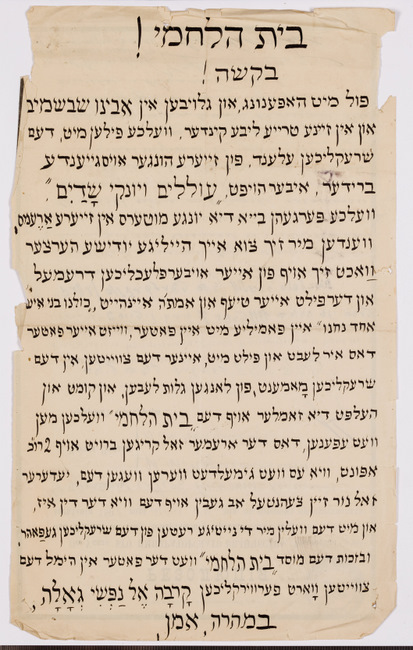 בית הלחמי !
בקשה !
פול מיט האפענונג, און גלויבען אין אבינו שבשמים
און אין זיינע טרייע ליבע קינדער, וועלכע פילען מיט, דעם
שרעקליכען עלענד, פון זייערע הונגער אויסגייענדע
ברידער, איבער הויפט, "עוללים ויונקי שָדַיִם",
וועלכע פערגעהן בייא דיא יונגע מוטערס אין זייערע אַרֶעמס,
ווענדען מיר זיך צוא אייך הייליגע יודישע הערצער
וואכט זיך אויף פון אייער אויבערפלעכליכען דרעמעל
און דערפילט אייער טיעף און אמת'ה איינהייט, "כולנו בני איש
אחד נחנו" איין פאמיליע מיט איין פאטער, ווייזט אייער פאטער
דאס איר לעבט און פילט מיט, איינער דעם צווייטען, אין דעם
שרעקליכען מָאמענט, פון לאנגען גלות לעבען, און קומט און
העלפט דיא זאמלער אויף דעם "בית הלחמי" וועלכען מען
וועט עפענען, דאס דער ארעמער זאל קריגען ברויט אויף 2 רוכ
אפונט, וויא עס וועט גימעלדעט ווערן וועגען דעם, יעדערער
זאל נור זיין צעהנטעל אב געבין אויף דעם וויא דער דין איז,
און מיט דעם וועלין מיר די נייטיגע רעטען פון דעם שרעקליכען געפאהר,
ובזכות דעם מוסד "בית הלחמי" וועט דער פאטער אין הימל דעם
צווייטען ווָארט פערווירקליכען קָרְבָה אֶל נַפְשִי גְאָלָה,
במהרה, אמן,